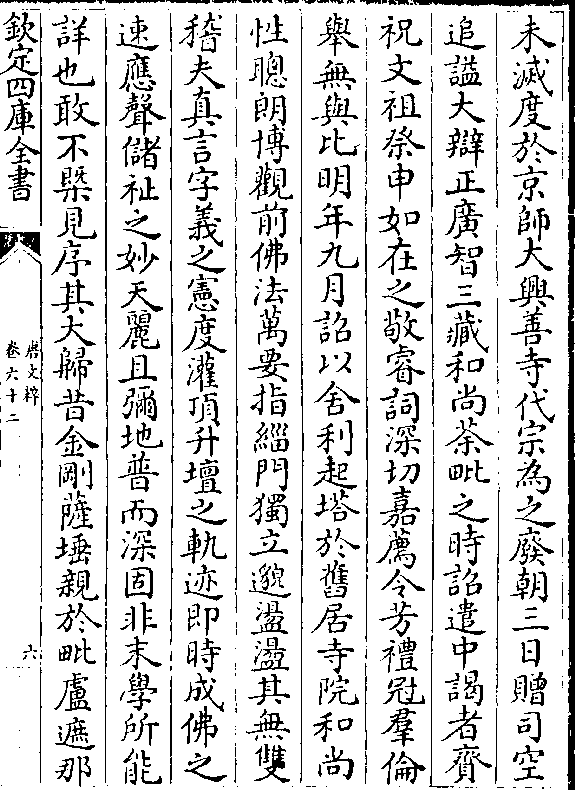 未滅度於京師大興善寺代宗為之廢朝三日贈司空
追諡大辯正廣智三藏和尚荼毗之時詔遣中謁者齎
祝文祖祭申如在之敬睿詞深切嘉薦令芳禮冠羣倫
舉無與比明年九月詔以舍利起塔於舊居寺院和尚
性聰朗博觀前佛法萬要指緇門獨立邈盪盪其無雙
稽夫真言字義之憲度灌頂升壇之軌迹即時成佛之
速應聲儲祉之妙天麗且彌地普而深固非末學所能
詳也敢不槩見序其大歸昔金剛薩埵親於毗盧遮那
欽定四庫全書
唐文粹
卷六十二
六